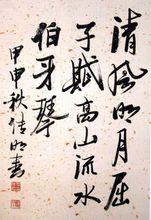 清风明月屈
子赋高山流水
伯牙琴
甲申秋佳明书